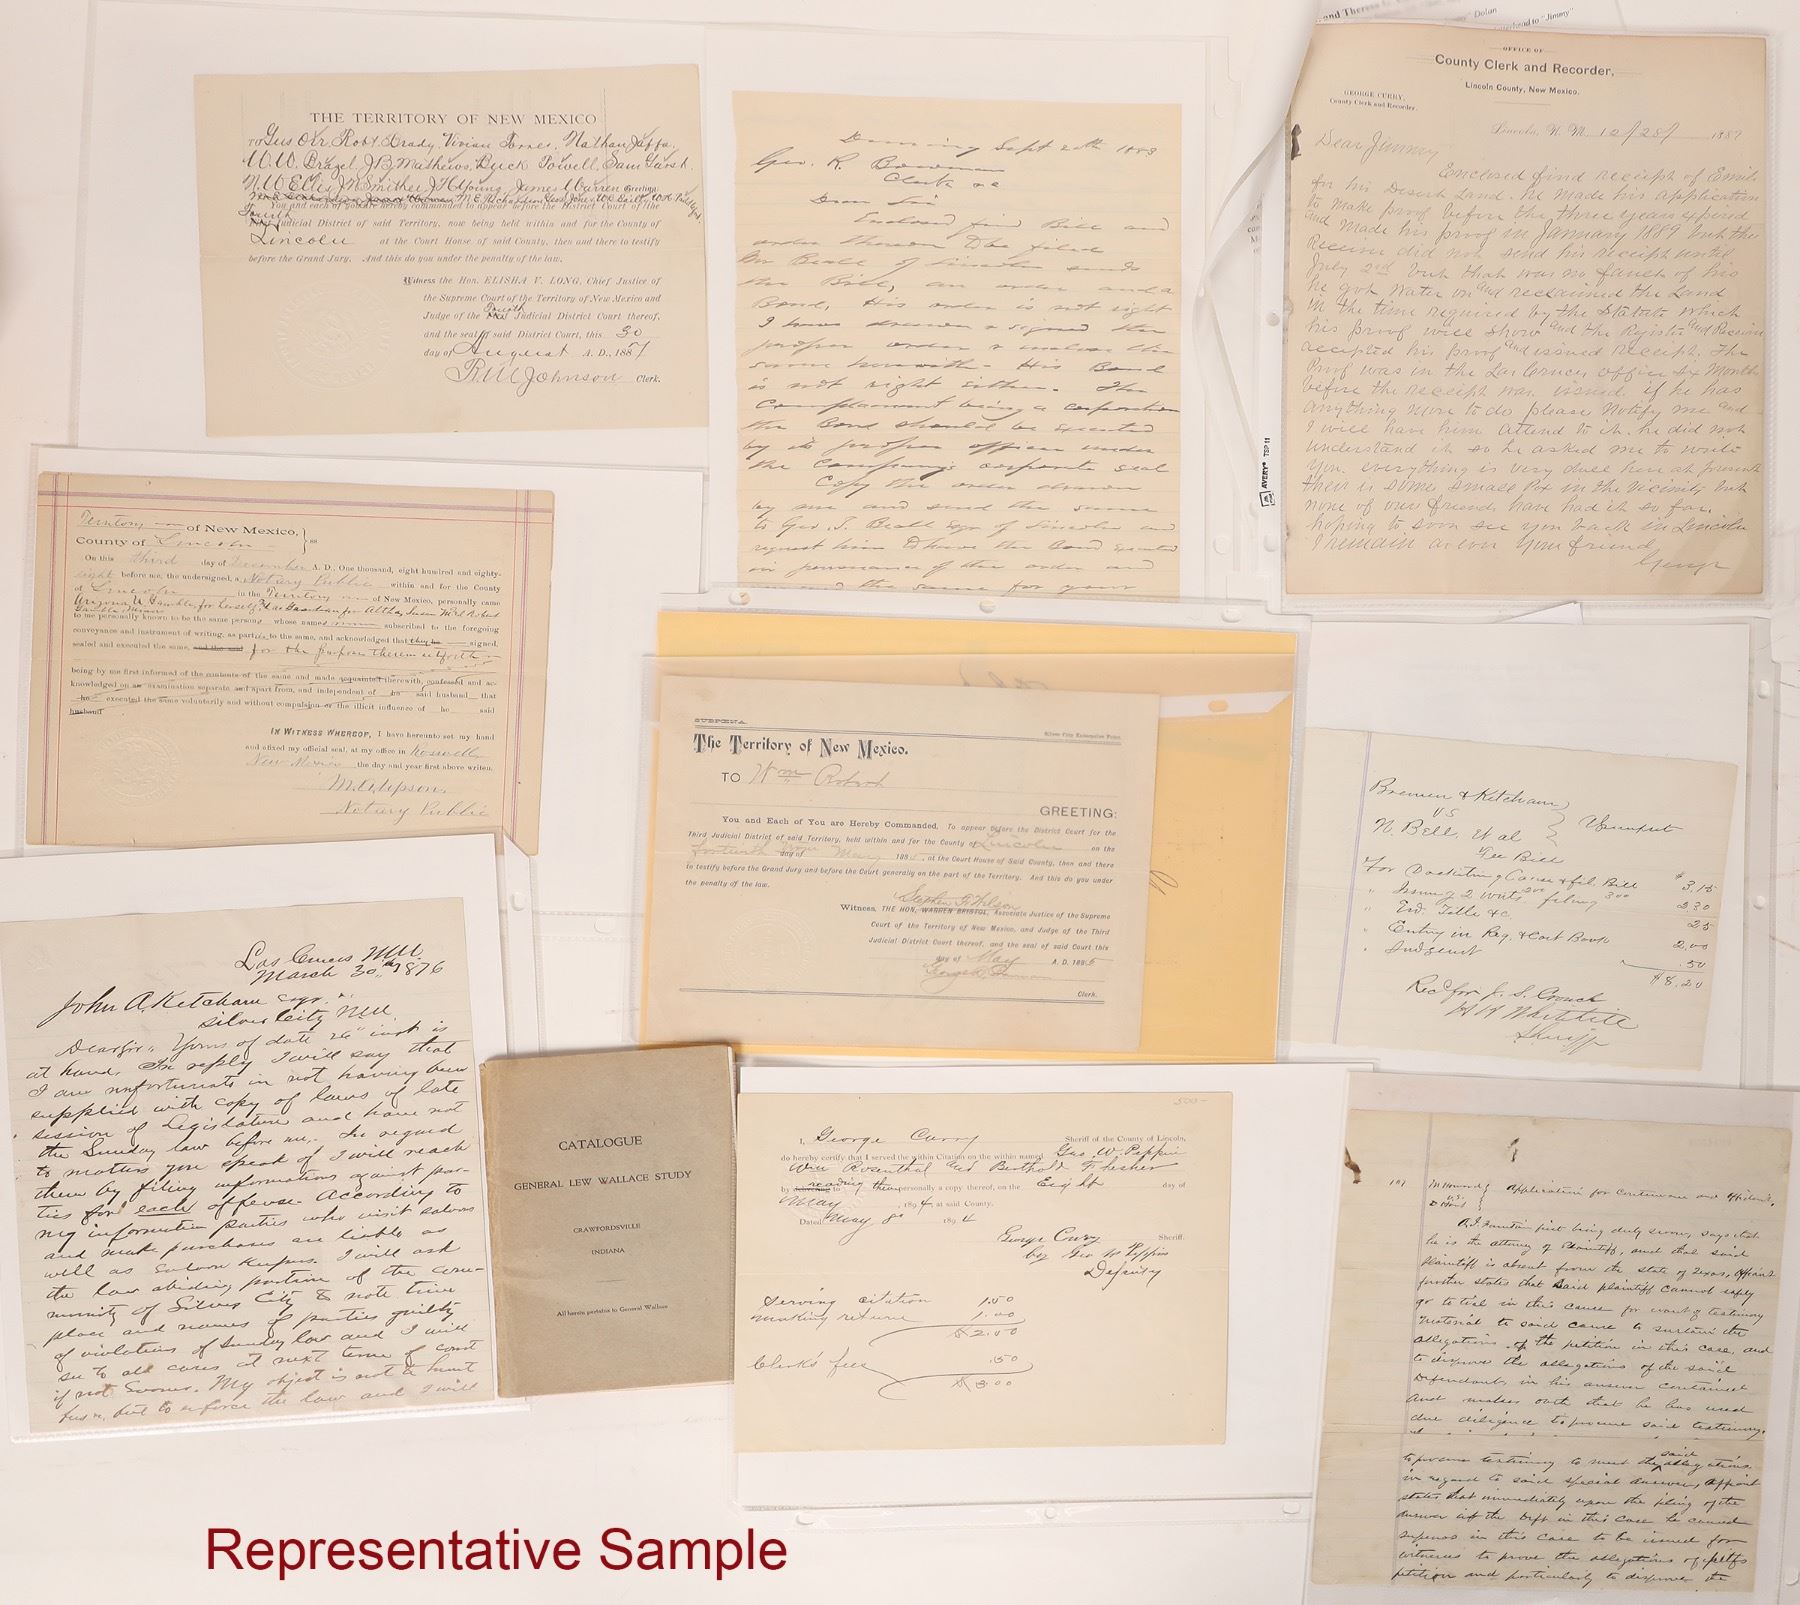 THE TERRITORY OF NEW MEXICO
TO Gus Orr, Robt Brady, Vivian Torres, Nathan Jaffa,
W.W. Brazel, J B Mathews, Buck Powell, Sam
N.W Ellis, J H Young, James Warren Greeting
You and each of you are hereby commanded to appear before the District Court of the
Fourth Judicial District of said Territory, now being held within and for the County of
Lincoln at the Court House of said County, then and there to testify
before the Grand Jury. And this do you under the penalty of the law.
Witness the Hon. ELISHA V. LONG, Chief Justice of
the Supreme Court of the Territory of New Mexico and
Judge of the Fourth Judicial District Court thereof,
and the seal of said District Court, this 30
day of August A. D., 188
Johnson Clerk.
Sept 20th 1883
Geo. R. Bowman
Clerk &c
Dear Sir
Enclosed find Bill and
order thereon to be filed
Mr Beall of Lincoln sends
the Bill, an order and a
Bond. His order is not right
I have drawn & signed the
proper order & enclose the
same herewith. His Bond
is not right either. The
complainant being a corporation
the Bond should be executed
by its proper officer under
the Company's corporate seal
Copy the order drawn
by me and send the same
to Geo. T. Beall Esq of Lincoln and
request him to have the Bond executed
in pursuance of the order and
the same for your
and Theresa
Dolan
to "Jimmy"
OFFICE OF
County Clerk and Recorder,
Lincoln County, New Mexico.
GEORGE CURRY,
County Clerk and Recorder.
Lincoln, N. M. 12/28/ 1889
Dear Jimmy
Enclosed find receipt of Emils
for his Desert Land. he made his application
to make proof before the three years expired
and made his proof in January 1889 but the
Receiver did not send his receipt until
July 2nd but that was no fault of his
he got water on and reclaimed the Land
in the time required by the Statute which
his proof will show and the Register and Receiver
accepted his proof and issued receipt. The
Proof was in the Las Cruces office six Months
before the receipt was issued. if he has
anything more to do please Notify me and
I will have him attend to it. he did not
understand it so he asked me to write
you. everything is very dull here at present
their is some small Pox in the vicinity but
none of our friends have had it so far.
hoping to soon see you back in Lincoln
I remain as ever your friend
George
AVERY® TSP11
Territory of New Mexico,
County of Lincoln } ss.
On this third day of December A. D. One thousand, eight hundred and eighty-
eight before me, the undersigned, a Notary Public within and for the County
of Lincoln in the Territory of New Mexico, personally came
Arizona U Gamble, for herself & as Guardian for
to me personally known to be the same persons whose names subscribed to the foregoing
conveyance and instrument of writing, as parties to the same, and acknowledged that they signed,
sealed and executed the same, and the said for the purpose therein set forth
being by me first informed of the contents of the same and made acquainted therewith, confessed and ac-
knowledged on an examination separate and apart from, and independent of he said husband that
he executed the same voluntarily and without compulsion or the illicit influence of he said
husband
IN WITNESS WHEREOF, I have hereunto set my hand
and affixed my official seal, at my office in Roswell
New Mexico the day and year first above written.
M. A. Upson,
Notary Public
SUBPŒNA.
Silver City Enterprise Print.
The Territory of New Mexico.
TO Wm
GREETING:
You and Each of You are Hereby Commanded, To appear before the District Court for the
Third Judicial District of said Territory, held within and for the County of Lincoln on the
day of May 188 , at the Court House of Said County, then and there
to testify before the Grand Jury and before the Court generally on the part of the Territory. And this do you under
the penalty of the law.
Stephen F Wilson
Witness, THE HON. WARREN BRISTOL, Associate Justice of the Supreme
Court of the Territory of New Mexico, and Judge of the Third
Judicial District Court thereof, and the seal of said Court this
day of May A. D. 1885
George R. Bowman
Clerk.
Bremen & Ketcham
vs
N. Bell, et al
Fee Bill
For Docketing Cause & fil. Bill $3.15
" Issuing 2 writs 2.00 filing 2.30
" End. Title &c. 25
" Entry in Reg. & Cost Book 2.00
" Indgment .50
$8.20
Recd for J. S. Crouch
H H Whitehill
Sheriff
Las Cruces N.M.
March 30th 1876
John A. Ketcham Esqr.
Silver City N.M.
Dear Sir: Yours of date 26" inst is
at hand. In reply I will say that
I am unfortunate in not having been
supplied with copy of laws of late
session of Legislature and have not
the Sunday law before me. In regard
to matters you speak of I will reach
them by filing informations against par-
ties for each offense. According to
my information parties who visit saloons
and make purchases are liable as
well as Saloon Keepers. I will ask
the law abiding portion of the com-
munity of Silver City to note time
place and names of parties guilty
of violations of Sunday law and I will
see to all cases at next term of court
if not sooner. My object is not to hunt
but to enforce the law and I will
CATALOGUE
GENERAL LEW WALLACE STUDY
CRAWFORDSVILLE
INDIANA
All herein pertains to General Wallace
500-
I, George Curry Sheriff of the County of Lincoln,
do hereby certify that I served the within Citation on the within named Geo. W. Peppin
Wm Rosenthal and Berthold
by reading them personally a copy thereof, on the Eight day of
May, 1894, at said County.
Dated May 8" 1894
George Curry Sheriff.
by Geo W Peppin
Deputy
Serving citation 1.50
making return 1.00
$2.00
Clerk's fees .50
$3.00
vs. } Application for Continuance and
A. J. Fountain first being duly sworn, says that
he is the attorney of Plaintiff, and that said
plaintiff is absent from the state of Texas, affiant
further states that Said plaintiff cannot safely
go to trial in this cause for want of testimony
material to said cause to sustain the
allegations of the petition in this case, and
to disprove the allegations of the said
Defendants, in his answer contained
and makes oath that he has used
due diligence to procure said testimony,
to procure testimony to meet the said allegations
in regard to said special answer, affiant
states that immediately upon the filing of the
answer of the Deft in this case he caused
supenas in this case to be issued for
witnesses to prove the allegations of pltfs
petition and particularly to disprove the
Representative Sample